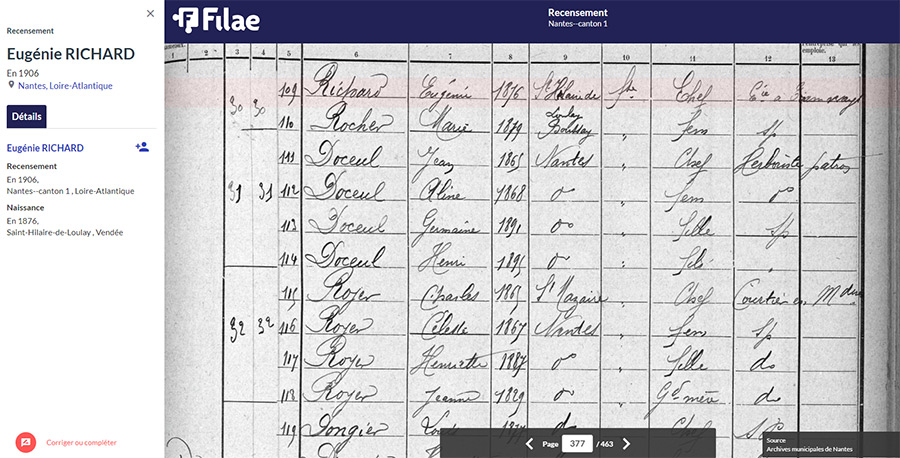 Recensement
Eugénie RICHARD
En 1906
Nantes, Loire-Atlantique
Détails
Eugénie RICHARD
Recensement
En 1906,
Nantes--canton 1 , Loire-Atlantique
Naissance
En 1876,
Saint-Hilaire-de-Loulay , Vendée
Corriger ou compléter
Filae
Recensement
Nantes--canton 1
1 2 3 4 5 6 7 8 9 10 11 12 13
30 30 109 Richard Eugénie 1876 St Hilaire de Chef
Loulay
110 Rocher Marie 1879 Boussay " fem sp
111 Doceul Jean 1865 Nantes " Chef Herboriste patron
31 31 112 Doceul Aline 1868 do " fem do
113 Doceul Germaine 1891 do " fille sp
114 Doceul Henri 1895 do " fils "
115 Royer Charles 1865 St Nazaire " Chef Courtier en
32 32 116 Royer Céleste 1867 Nantes " fem sp
117 Royer Henriette 1887 do " fille do
118 Royer Jeanne 1829 do " Gd mère do
119 Chef
Page 377 / 463
Source
Archives municipales de Nantes